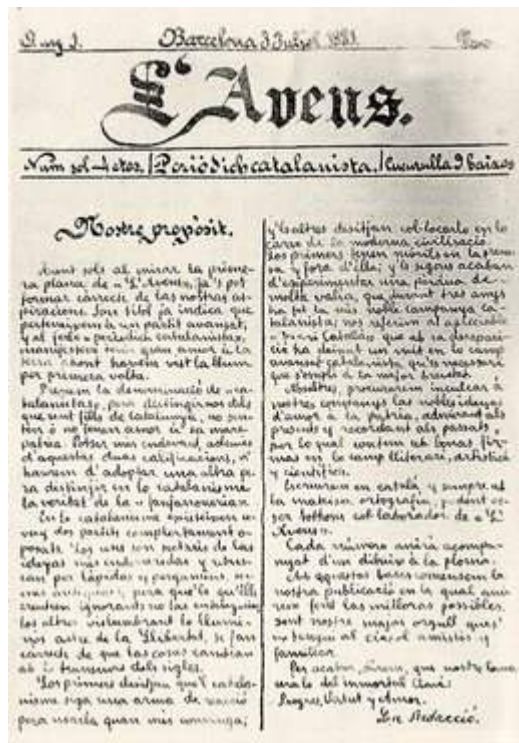 Any I. Barcelona 3 Juliol 1881. Nº
L'Avens.
Núm sol 4 ctos. / Periódich catalanista. / Cucurulla 9 baixos
Nostre propòsit.
sols al mirar la prime-
ra plana de «L'Avens», ja's pot
formar cárrech de las nostras as-
piracions. Son títol ja indica que
perteneixem á un partit avansat,
y al ferlo «periódich catalanista»,
gran amor á la
terra ahont havém vist la llum
per primera volta.
Prenem la denominació de «ca-
talanistas», pera distingirnos dels
que sent fills de Catalunya, no sen-
ten ó no tenen amor á sa mare
patria. Potser mes endevant, ademés
d'aquestas duas calificacions,
haurem d'adoptar una altra pe-
ra destinjir en lo catalanisme
la veritat de la «fanfarroneria».
En lo catalanisme existeixen
vuy dos partits complertament o-
posats. Los uns son sectaris de las
ideyas mes endarreridas y
can per lápidas y pergamins,
pera que'ls
ignorants no las
los altres vislumbrant lo llumi-
nós astre de la Llibertat, se fan
cárrech de que las cosas cambian
ab lo transcurs dels sigles.
Los primers desitjan que'l catala-
nisme siga una arma de reacció
pera usarla quan mes convinga;
y'ls altres desitjan col-locarlo en lo
carro de la moderna civilisació.
Los primers tenen en la prem-
sa y fora d'ella; y'ls segons acaban
d'experimentar una pérdua de
molta valía, que durant tres anys
ha fet la més noble campanya ca-
talanista; nos referim al
«Diari Catalá» que ab sa desapari-
ció ha deixat un vuit en lo camp
avansat catalanista, qu'es necessari
que s'ompli
Nosaltres, procurarem inculcar á
nostres companys las nobles ideyas
d'amor á la patria, admirant als
presents y recordant als passats,
per lo qual contem ab bonas fir-
mas en lo camp lliterari, artístich
y científich.
Escriurem en catalá y sempre ab
la mateixa ortografía, podent és-
ser tothom col-laborador de «L'
Avens».
Cada número anirá acompa-
nyat d'un dibuix á la ploma.
Ab aquestas bases comensem la
nostra publicació en la qual anir
rem fent las milloras possibles,
sent nostre major orgull ques'
al círcol amistós y
familiar.
Per acabar, direm, que nostre lema
será lo del inmortal Clavé:
Progrés, Virtut y Amor.
La Redacció.